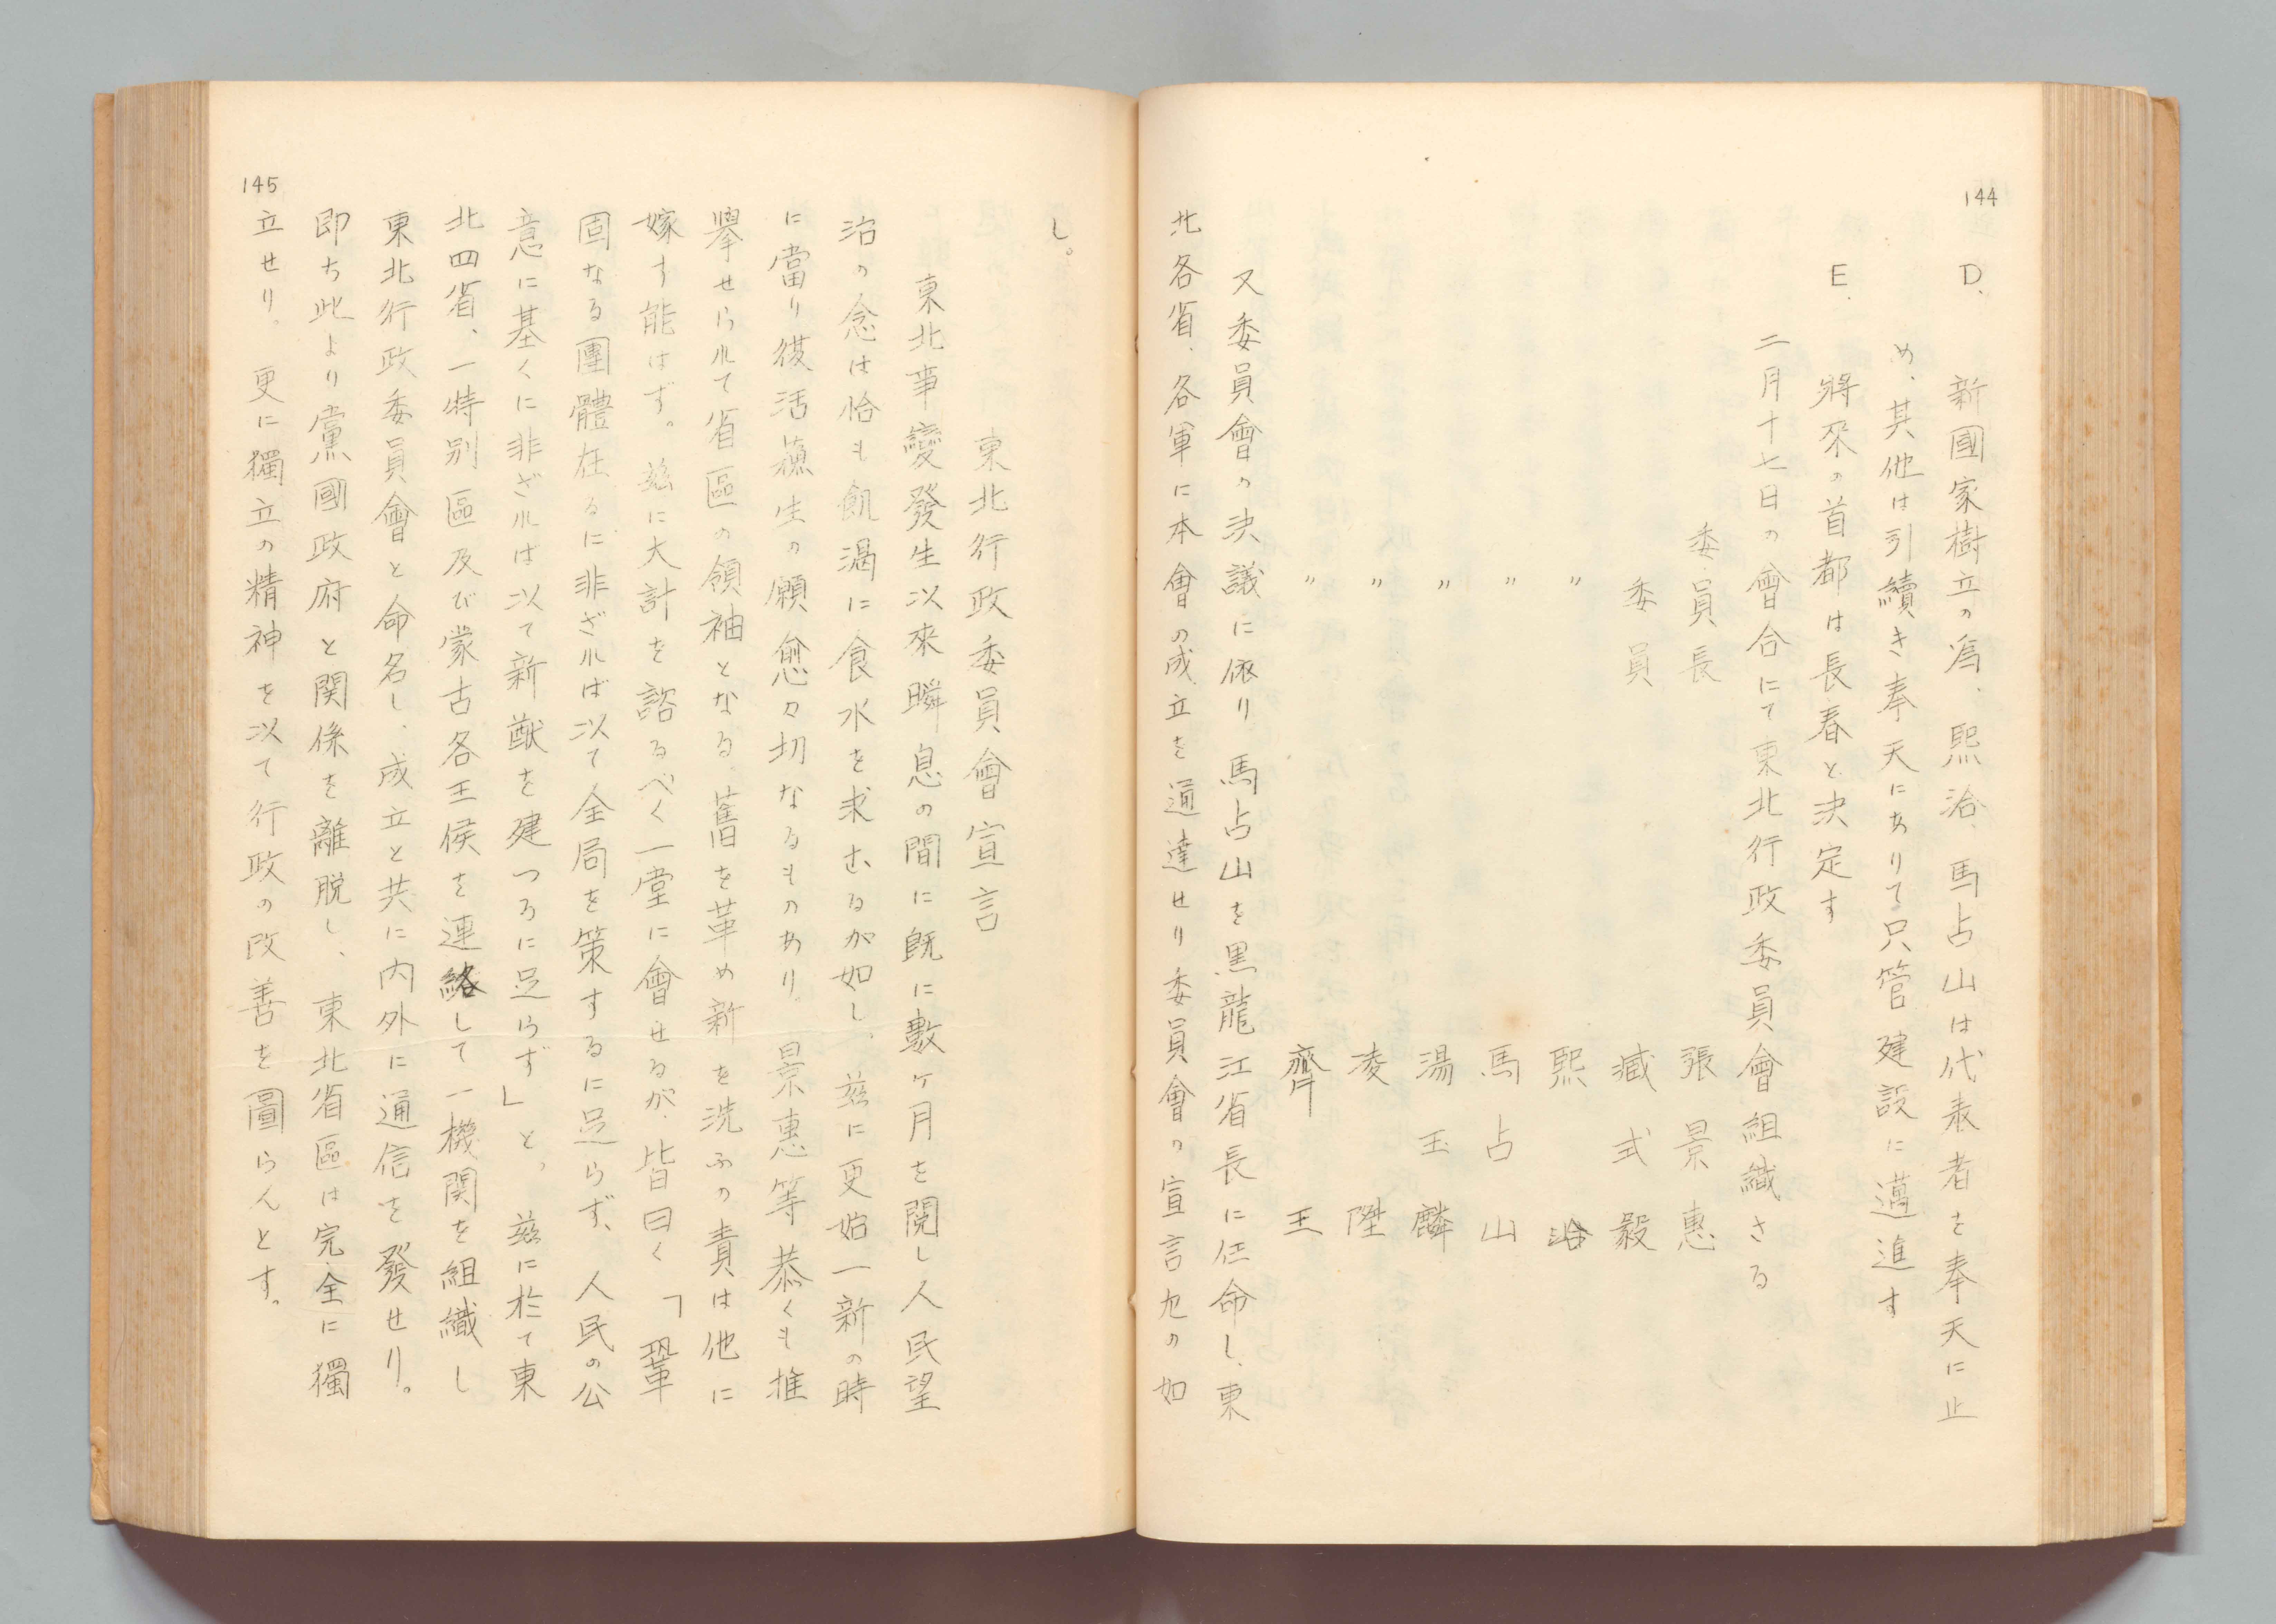 144
D. 新國家樹立の爲、熙洽、馬占山は代表者を奉天に止
め、其他は引續き奉天にありて只管建設に邁進す
E. 將來の首都は長春と決定す
二月十七日の會合にて東北行政委員會組織さる
委員長 張景惠
委員 臧式毅
〃 熙洽
〃 馬占山
〃 湯玉麟
〃 凌陞
〃 齊王
又委員會の決議に依り馬占山を黑龍江省長に任命し、東
北各省、各軍に本會の成立を通達せり委員會の宣言左の如
145
し。
東北行政委員會宣言
東北事變發生以來瞬息の間に既に數ヶ月を閲し人民望
治の念は恰も飢渴に食水を求むるが如し。茲に更始一新の時
に當り復活蘇生の願愈々切なるものあり。景惠等恭くも推
擧せられて省區の領袖となる、舊を革め新を洗ふの責は他に
嫁す能はず。茲に大計を諮るべく一堂に會せるが、皆曰く「鞏
固なる團體在るに非ざれば以て全局を策するに足らず、人民の公
意に基くに非ざれば以て新猷を建つるに足らず」と。茲に於て東
北四省、一特別區及び蒙古各王侯を連絡して一機関を組織し
東北行政委員會と命名し、成立と共に内外に通信を發せり。
即ち此より黨國政府と関係を離脱し、東北省區は完全に獨
立せり。更に獨立の精神を以て行政の改善を圖らんとす。